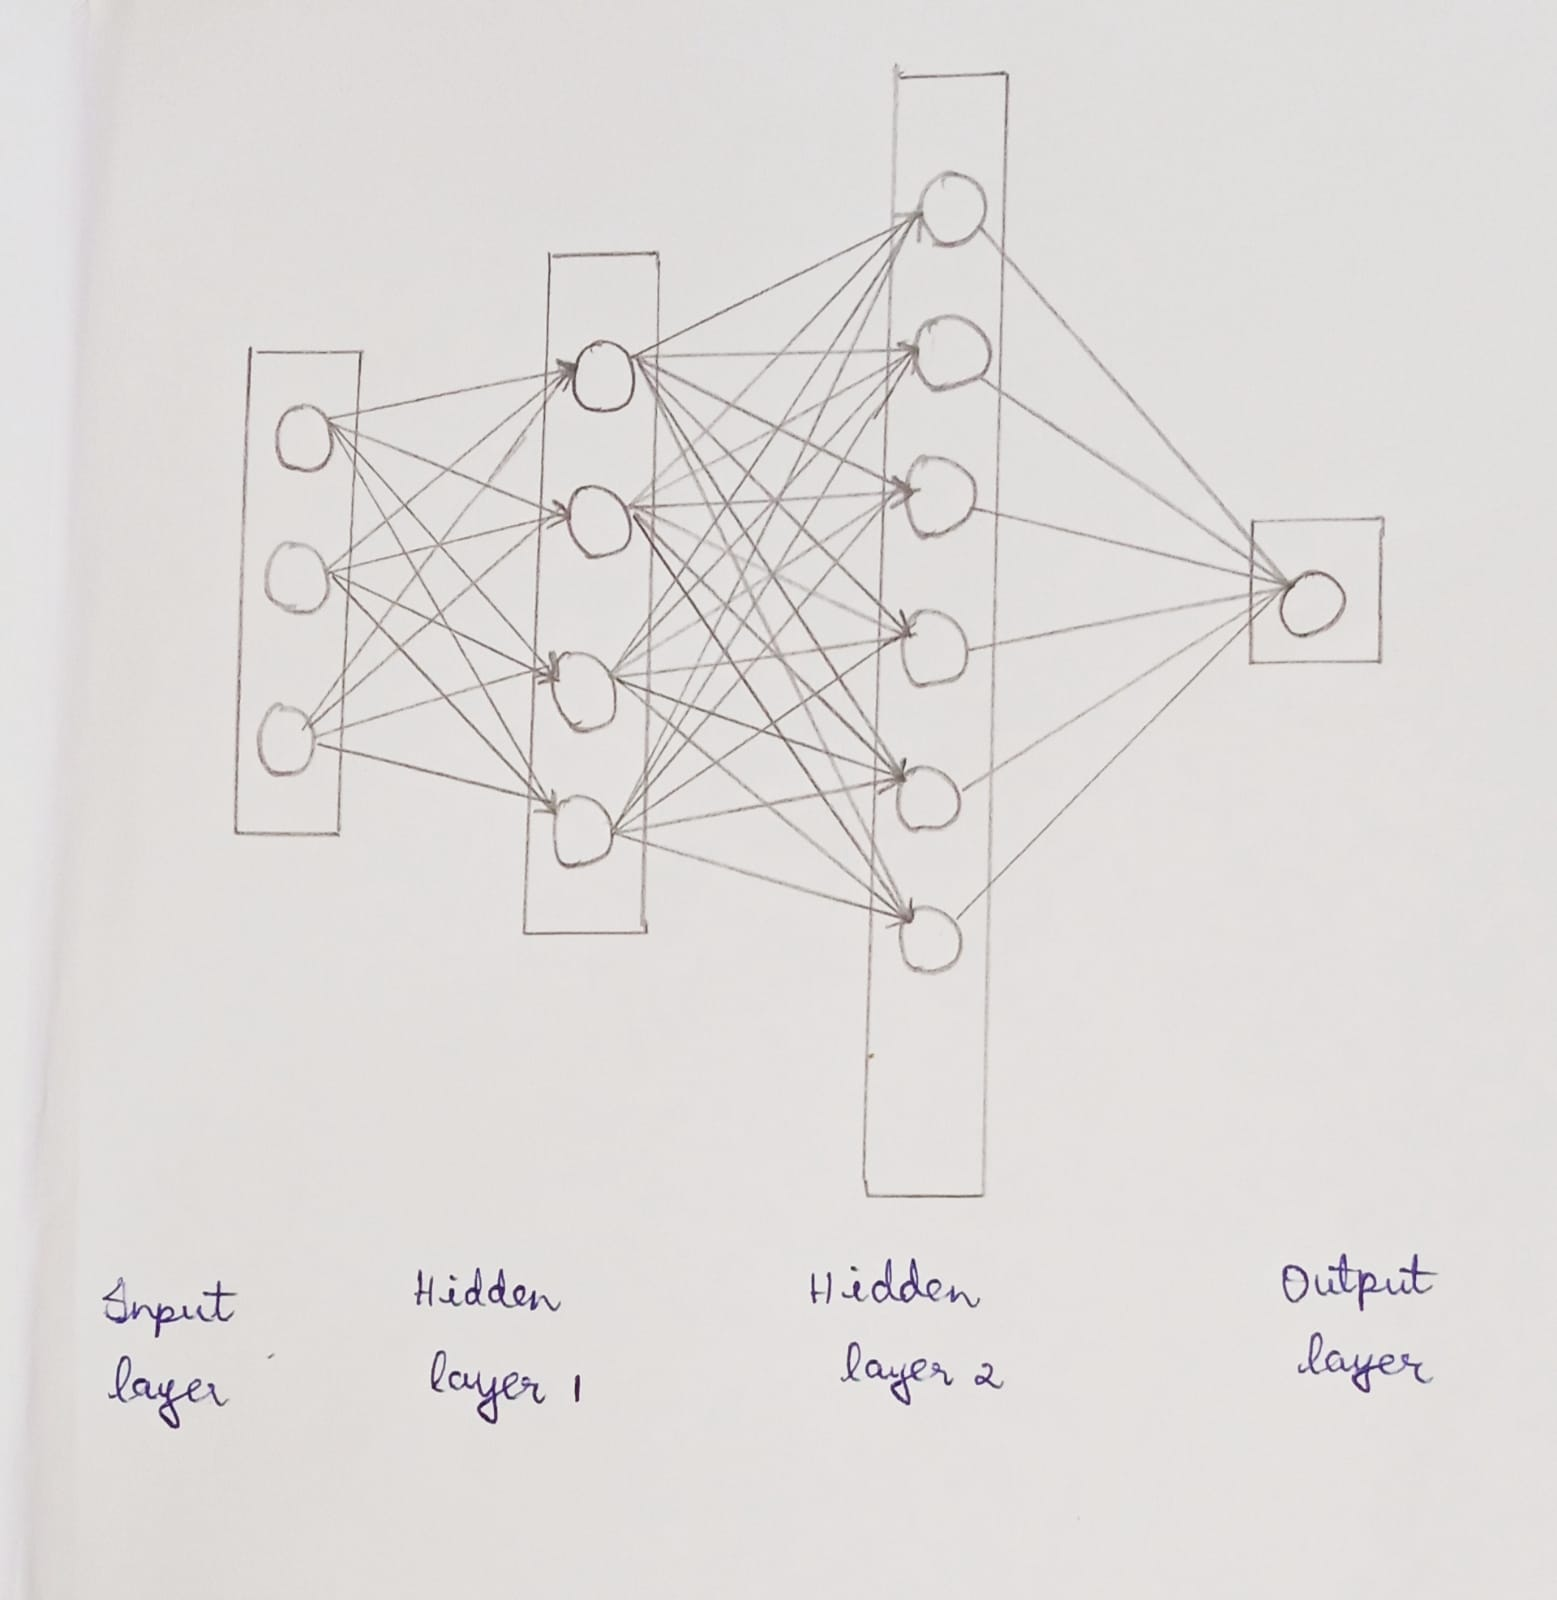 Input layer
Hidden layer 1
Hidden layer 2
Output layer